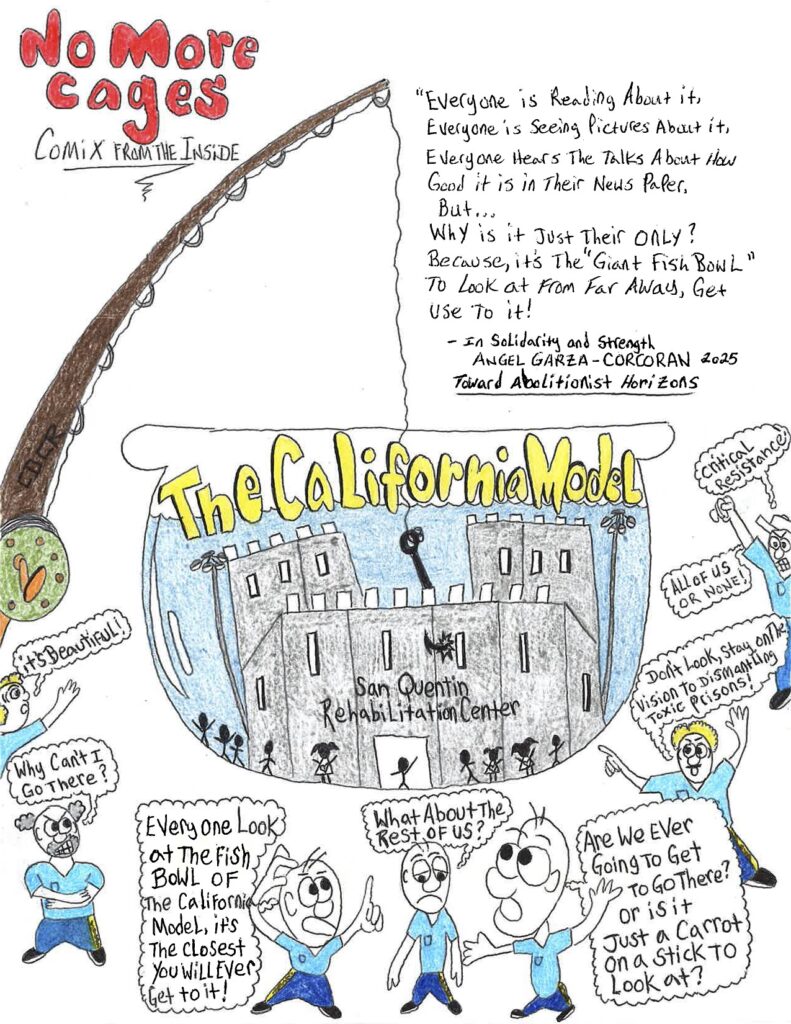 No More
Cages
Comix From The Inside
"Everyone is Reading About it,
Everyone is Seeing Pictures About it,
Everyone Hears The Talks About How
Good it is in Their News Paper.
But...
Why is it Just Their ONLY?
Because, it's The "Giant Fish Bowl"
To Look at From Far Away, Get
Use To it!
- In Solidarity and Strength
ANGEL GARZA - CORCORAN 2025
Toward Abolitionist Horizons
CDCR
The California Model
San Quentin
Rehabilitation Center
Critical
Resistance
All of Us
Or None!
Don't Look, Stay on The
Vision To Dismantling
Toxic Prisons!
it's Beautiful!
Why Can't I
Go There?
Everyone Look
at The Fish
Bowl OF
The California
Model, it's
The Closest
You Will Ever
Get to it!
What About The
Rest of Us?
Are We Ever
Going To Get
To Go There?
Or is it
Just a Carrot
On a Stick To
Look at?